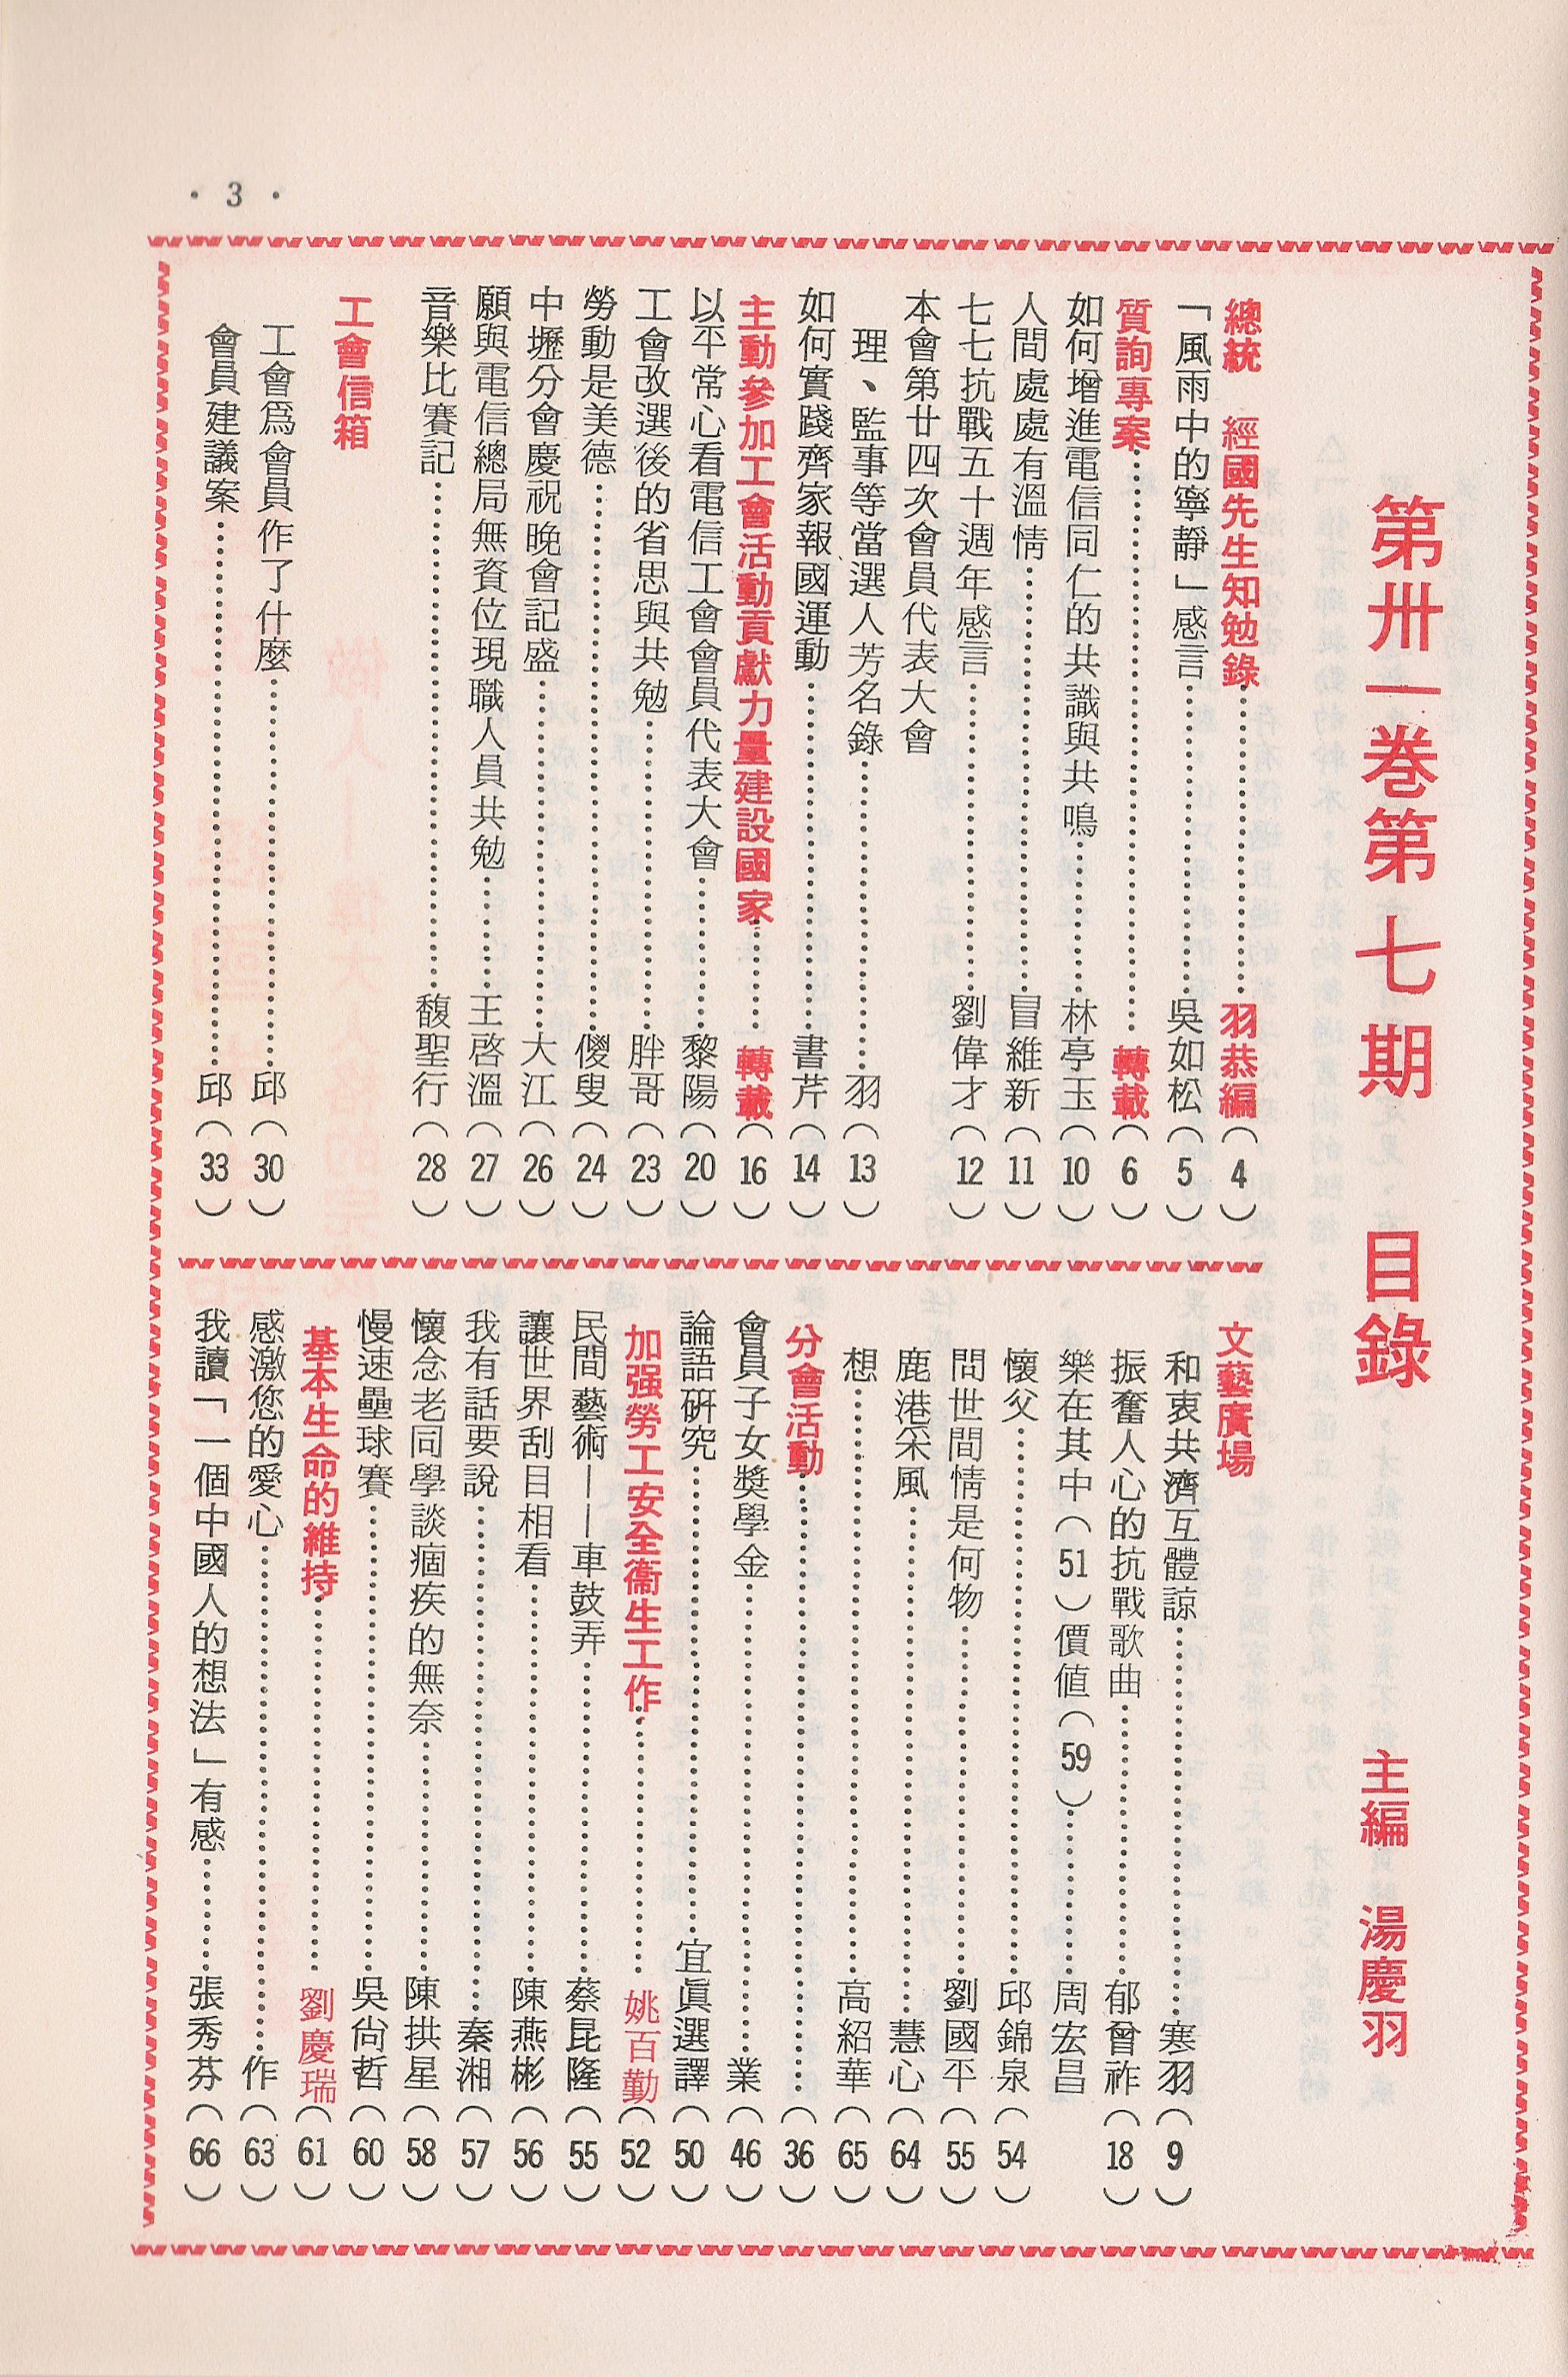 ・3・
第卅一卷第七期　目錄　主編　湯慶羽
總統　經國先生知勉錄……羽恭編(4)
「風雨中的寧靜」感言……吳如松(5)
質詢專案……轉載(6)
如何增進電信同仁的共識與共鳴……林亭玉(10)
人間處處有溫情……冒維新(11)
七七抗戰五十週年感言……劉偉才(12)
本會第廿四次會員代表大會
理、監事等當選人芳名錄……羽(13)
如何實踐齊家報國運動……書芹(14)
主動參加工會活動貢獻力量建設國家……轉載(16)
以平常心看電信工會會員代表大會……黎陽(20)
工會改選後的省思與共勉……胖哥(23)
勞動是美德……儍叟(24)
中壢分會慶祝晚會記盛……大江(26)
願與電信總局無資位現職人員共勉……王啓溫(27)
音樂比賽記……馥聖行(28)
工會信箱
工會爲會員作了什麼……邱(30)
會員建議案……邱(33)
文藝廣場
和衷共濟互體諒……寒羽(9)
振奮人心的抗戰歌曲……郁曾祚(18)
樂在其中(51)價値(59)……周宏昌
懷父……邱錦泉(54)
問世間情是何物……劉國平(55)
鹿港采風……慧心(64)
想……高紹華(65)
分會活動……(36)
會員子女獎學金……業(46)
論語硏究……宜眞選譯(50)
加强勞工安全衞生工作……姚百勤(52)
民間藝術——車鼓弄……蔡昆隆(55)
讓世界刮目相看……陳燕彬(56)
我有話要說……秦湘(57)
懷念老同學談痼疾的無奈……陳拱星(58)
慢速壘球賽……吳尙哲(60)
基本生命的維持……劉慶瑞(61)
感激您的愛心……作(63)
我讀「一個中國人的想法」有感……張秀芬(66)